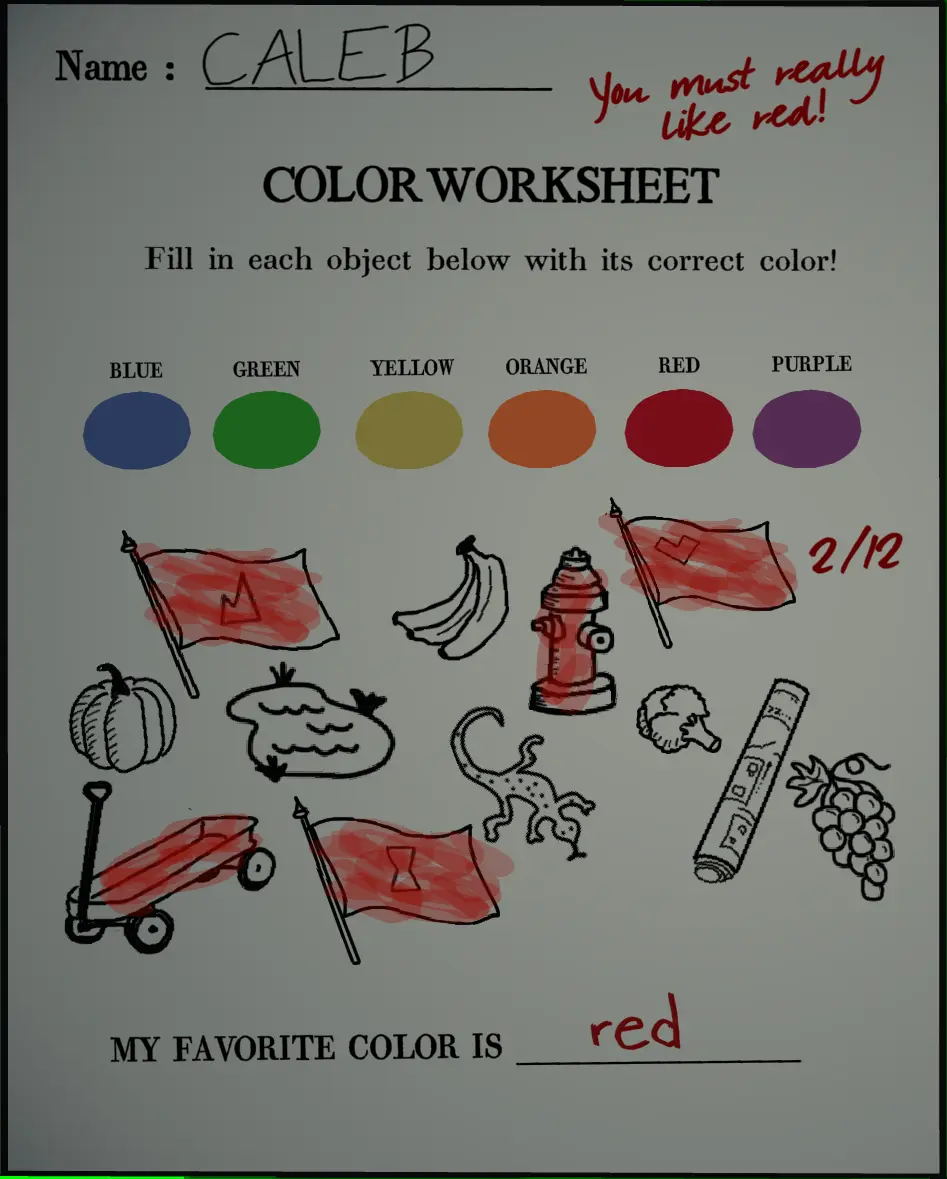 Name : CALEB
You must really
like red!
COLOR WORKSHEET
Fill in each object below with its correct color!
BLUE GREEN YELLOW ORANGE RED PURPLE
2/12
MY FAVORITE COLOR IS red